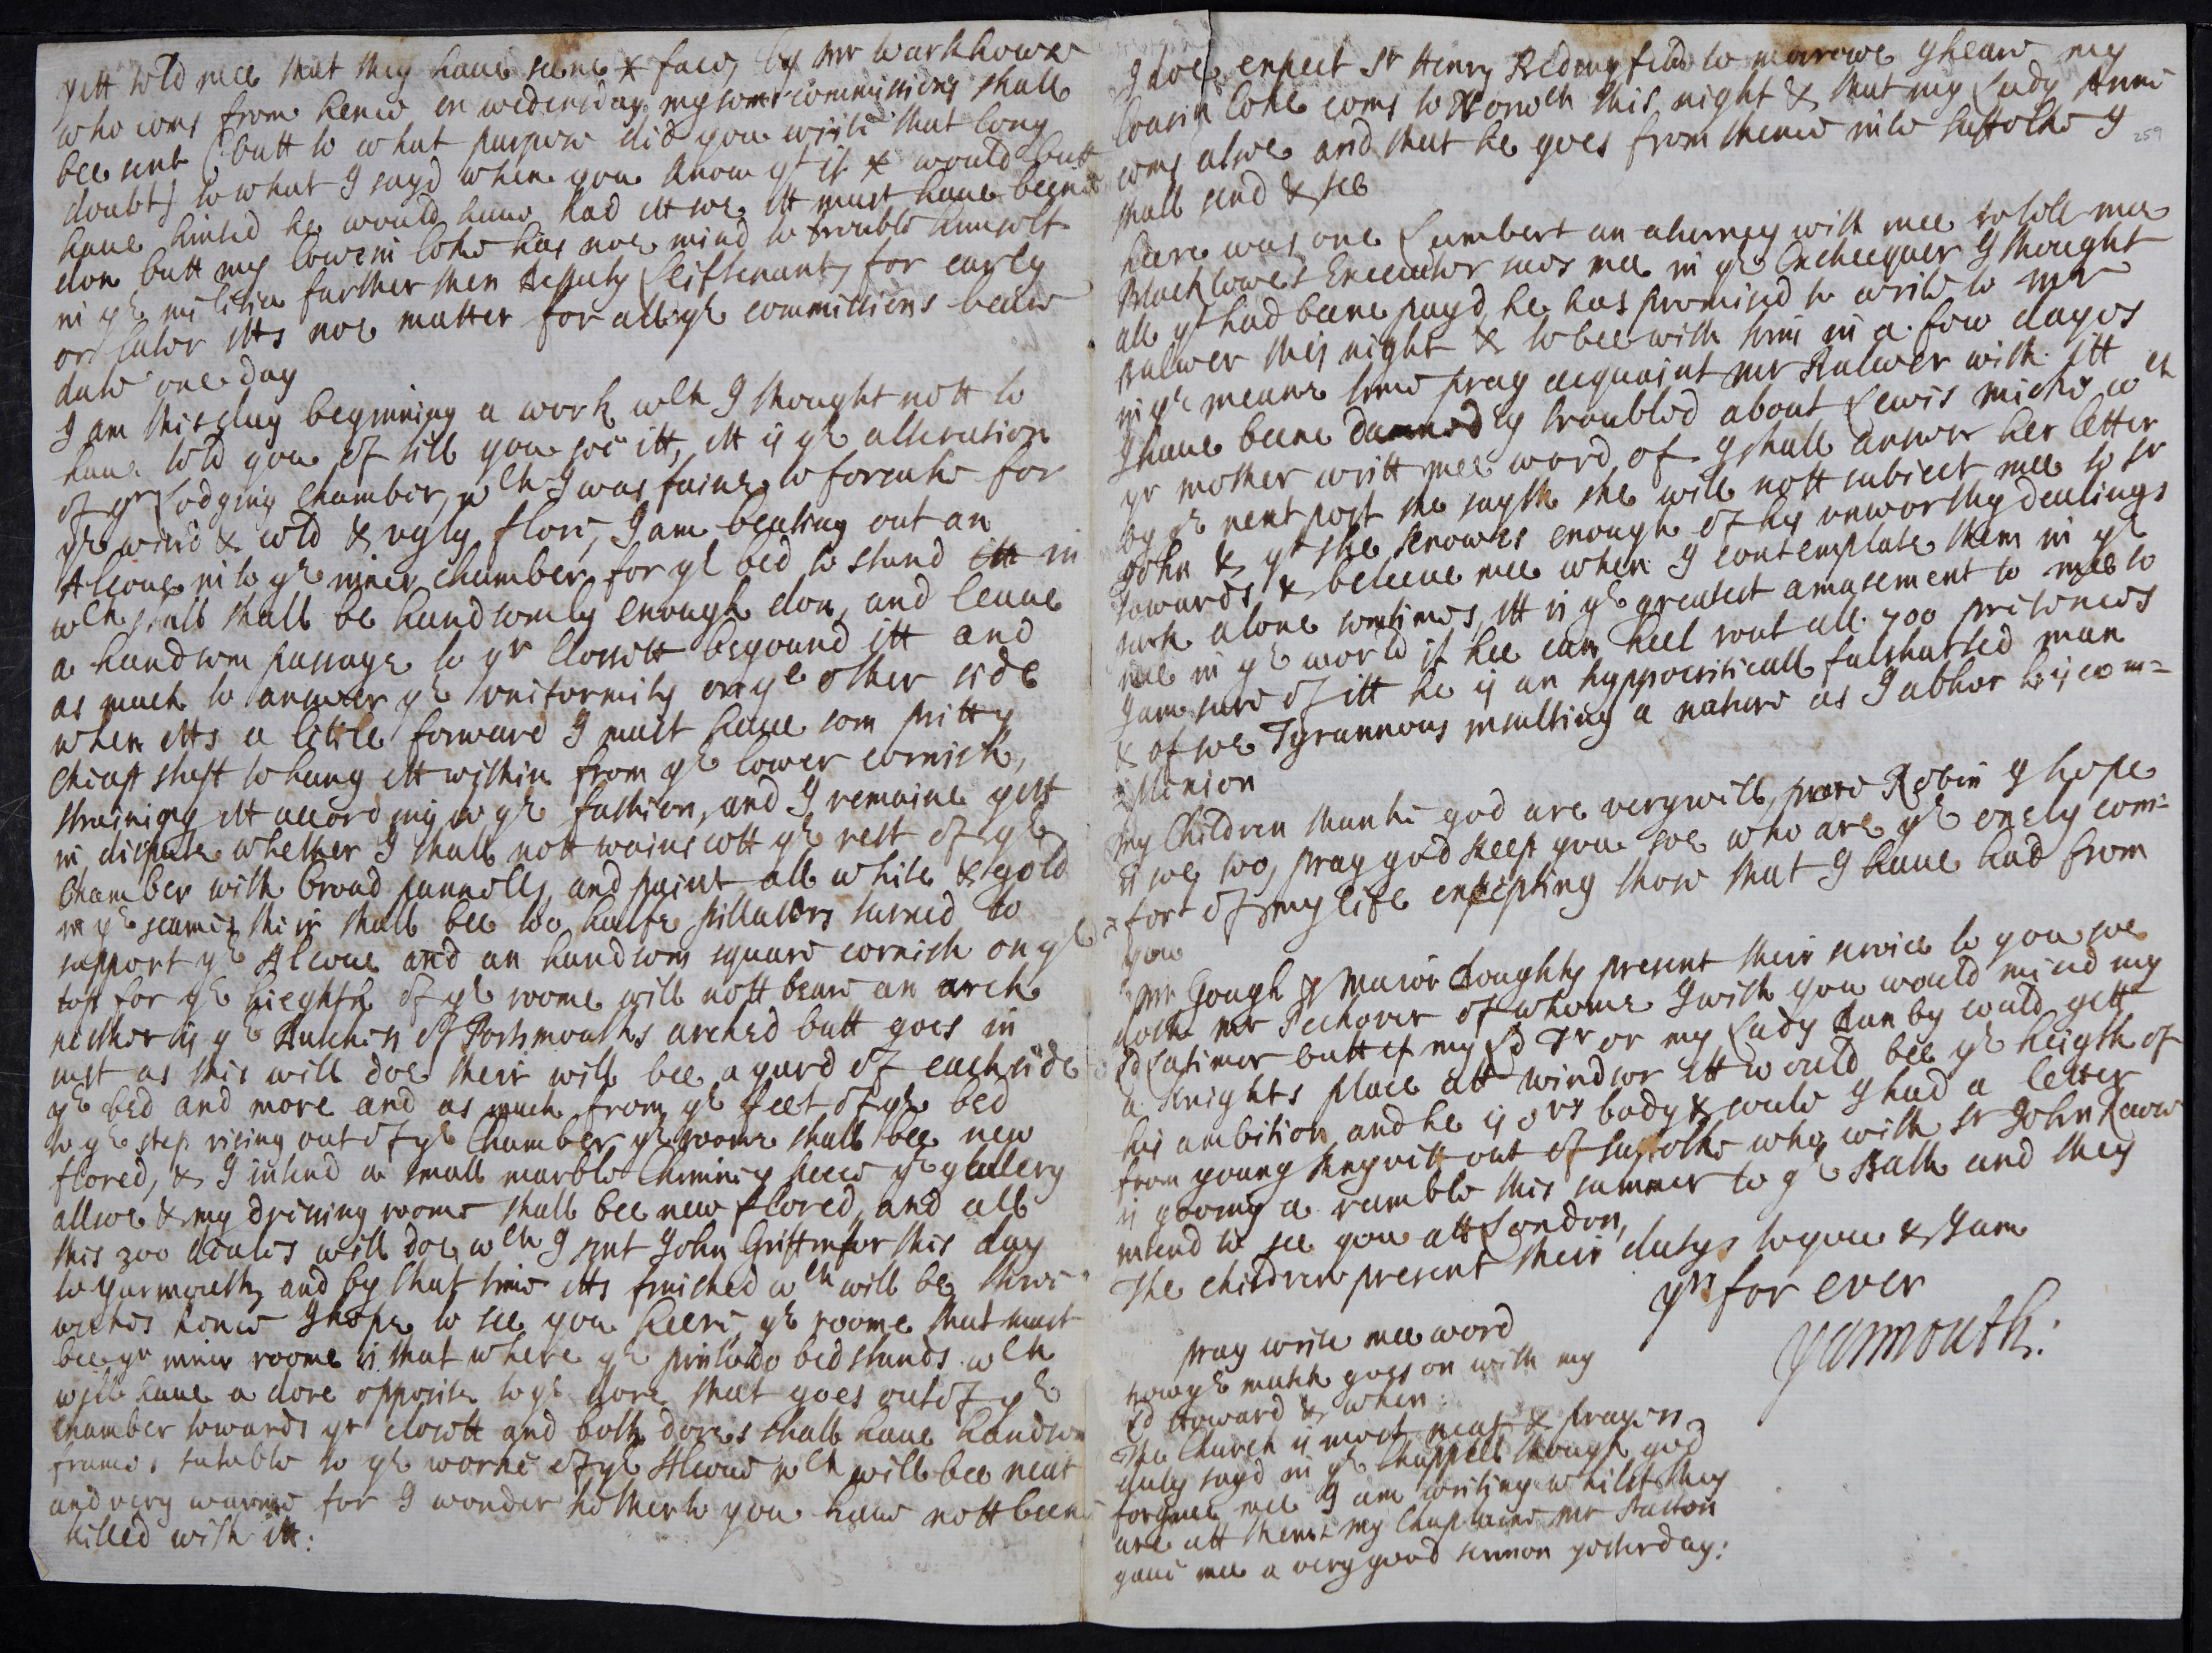 yett told mee that they have seene x face, by Mr Warkhowse
who coms from hence on wedensday my sons commissions shall
bee sent (butt to what purpose did you write that long
doubt) to what I sayd when you know yt if x would butt
have hinted he would have had itt soe itt must have beene
don butt my Cowsin Coke has noe mind to trouble himselfe
in ye militia further then Deputy Leiftenant, for early
or later itts noe matter for all ye commissions beare
date one day
I am this day beginning a work wch I thought nott to
have told you of till you see itt, itt is ye alteration
of yr Lodging Chamber, wch I was faine to forsake for
ye wind & cold & ugly flore, I am beating out an
Alcove into ye inner chamber for ye bed to stand in
wch shall be handsomly enough don, and leave
a handsom passage to yr Clossett beyound itt and
as much to answer ye uniformity on ye other side
when itts a little forward I must have som pritty
cheap stuff to hang itt within from ye lower cornish,
straining itt according to ye fashion, and I remaine yett
in dispute whether I shall nott wainscott ye rest of ye
Chamber with broad pannells, and paint all white & gold
in ye seames their shall bee two halfe pillasters turned to
support ye Alcove and an handsom square cornish on ye
top for ye hieghth of ye roome will nott beare an arch
neither is ye Dutchess of Portsmouths arched butt goes in
just as this will doe their will bee a yard of each side
ye bed and more and as much from ye feet of ye bed
to ye step rising out of ye Chamber ye roome shall bee new
flored, & I intend a small marble Chimny peece ye gallery
allsoe & my drining roome shall bee new flored, and all
this 300 deales will doe wch I sent John Griffin for this day
to Yarmouth, and by that time itts finished wch will be three
weekes hence I hope to see you heere, ye roome that must
bee yr inner roome is that where ye pintado bed stands wch
will have a dore opposite to ye dore that goes out of ye
chamber towards yr clossett and both dores shall have handsom
frames sutable to ye worke of ye Alcove wch will bee neat
and very warme for I wonder hetherto you have nott beene
killed with itt:
I doe expect Sr Henry Bedingfeild to morrowe I heare my
Cousin Coke coms to Norwch this night & that my Lady Anne
coms alsoe and that he goes from thence into Suffolke I
shall send & see
259
heere was one Lambert an aturney with mee to tell mee
Blacklowes Executor sues mee in ye Exchequer I thought
all yt had beene payd, he has promised to write to Mr
Bulwer this night & to bee with him in a few dayes
in ye meane time pray acquaint Mr Bulwer with itt
I have beene damnedly troubled about Lewis Micke wch
yr mother writt mee word of I shall answer her letter
by ye next post she sayth she will nott subject mee to Sr
John & yt she knowes enough of his unworthy dealings
towards & beleeve mee when I contemplate them in ye
park alone somtimes, itt is ye greatest amasement to mee to
mee in ye world if hee can heel rout all 700 prisoners
I am sure of itt he is an hyppocriticall falsharted man
& of soe Tyrannous insulting a nature as I abhor his com=
=Munion
My Children thanke god are very well, pore Robin I hope
is soe too, pray god keep you soe who are ye onely com=
=fort of my life excepting those that I have had from
you
Mr Gough & Maior Doughty present their service to you soe
doth Mr Peckover of whome I wish you would mind my
Ld Latimer butt if my Ld Tr or my Lady Danby could gett
a Knights place att Windsor itt would bee ye heigth of
his ambition and he is ours body & soule I had a letter
from young Knyvitt out of Suffolke who with Sr John Rowse
is gooing a ramble this summer to ye Bath and they
intend to see you att London,
The children present their dutys to you & I am
yrs for ever
Yarmouth:
pray write mee word
how ye match goes on with my
Ld Howard & when:
The Church is most neat & prayers
duly sayd in ye Chappell though god
forgive mee I am writing whilst they
are att them: my Chaplaine Mr
gave mee a very good sermon yesterday: